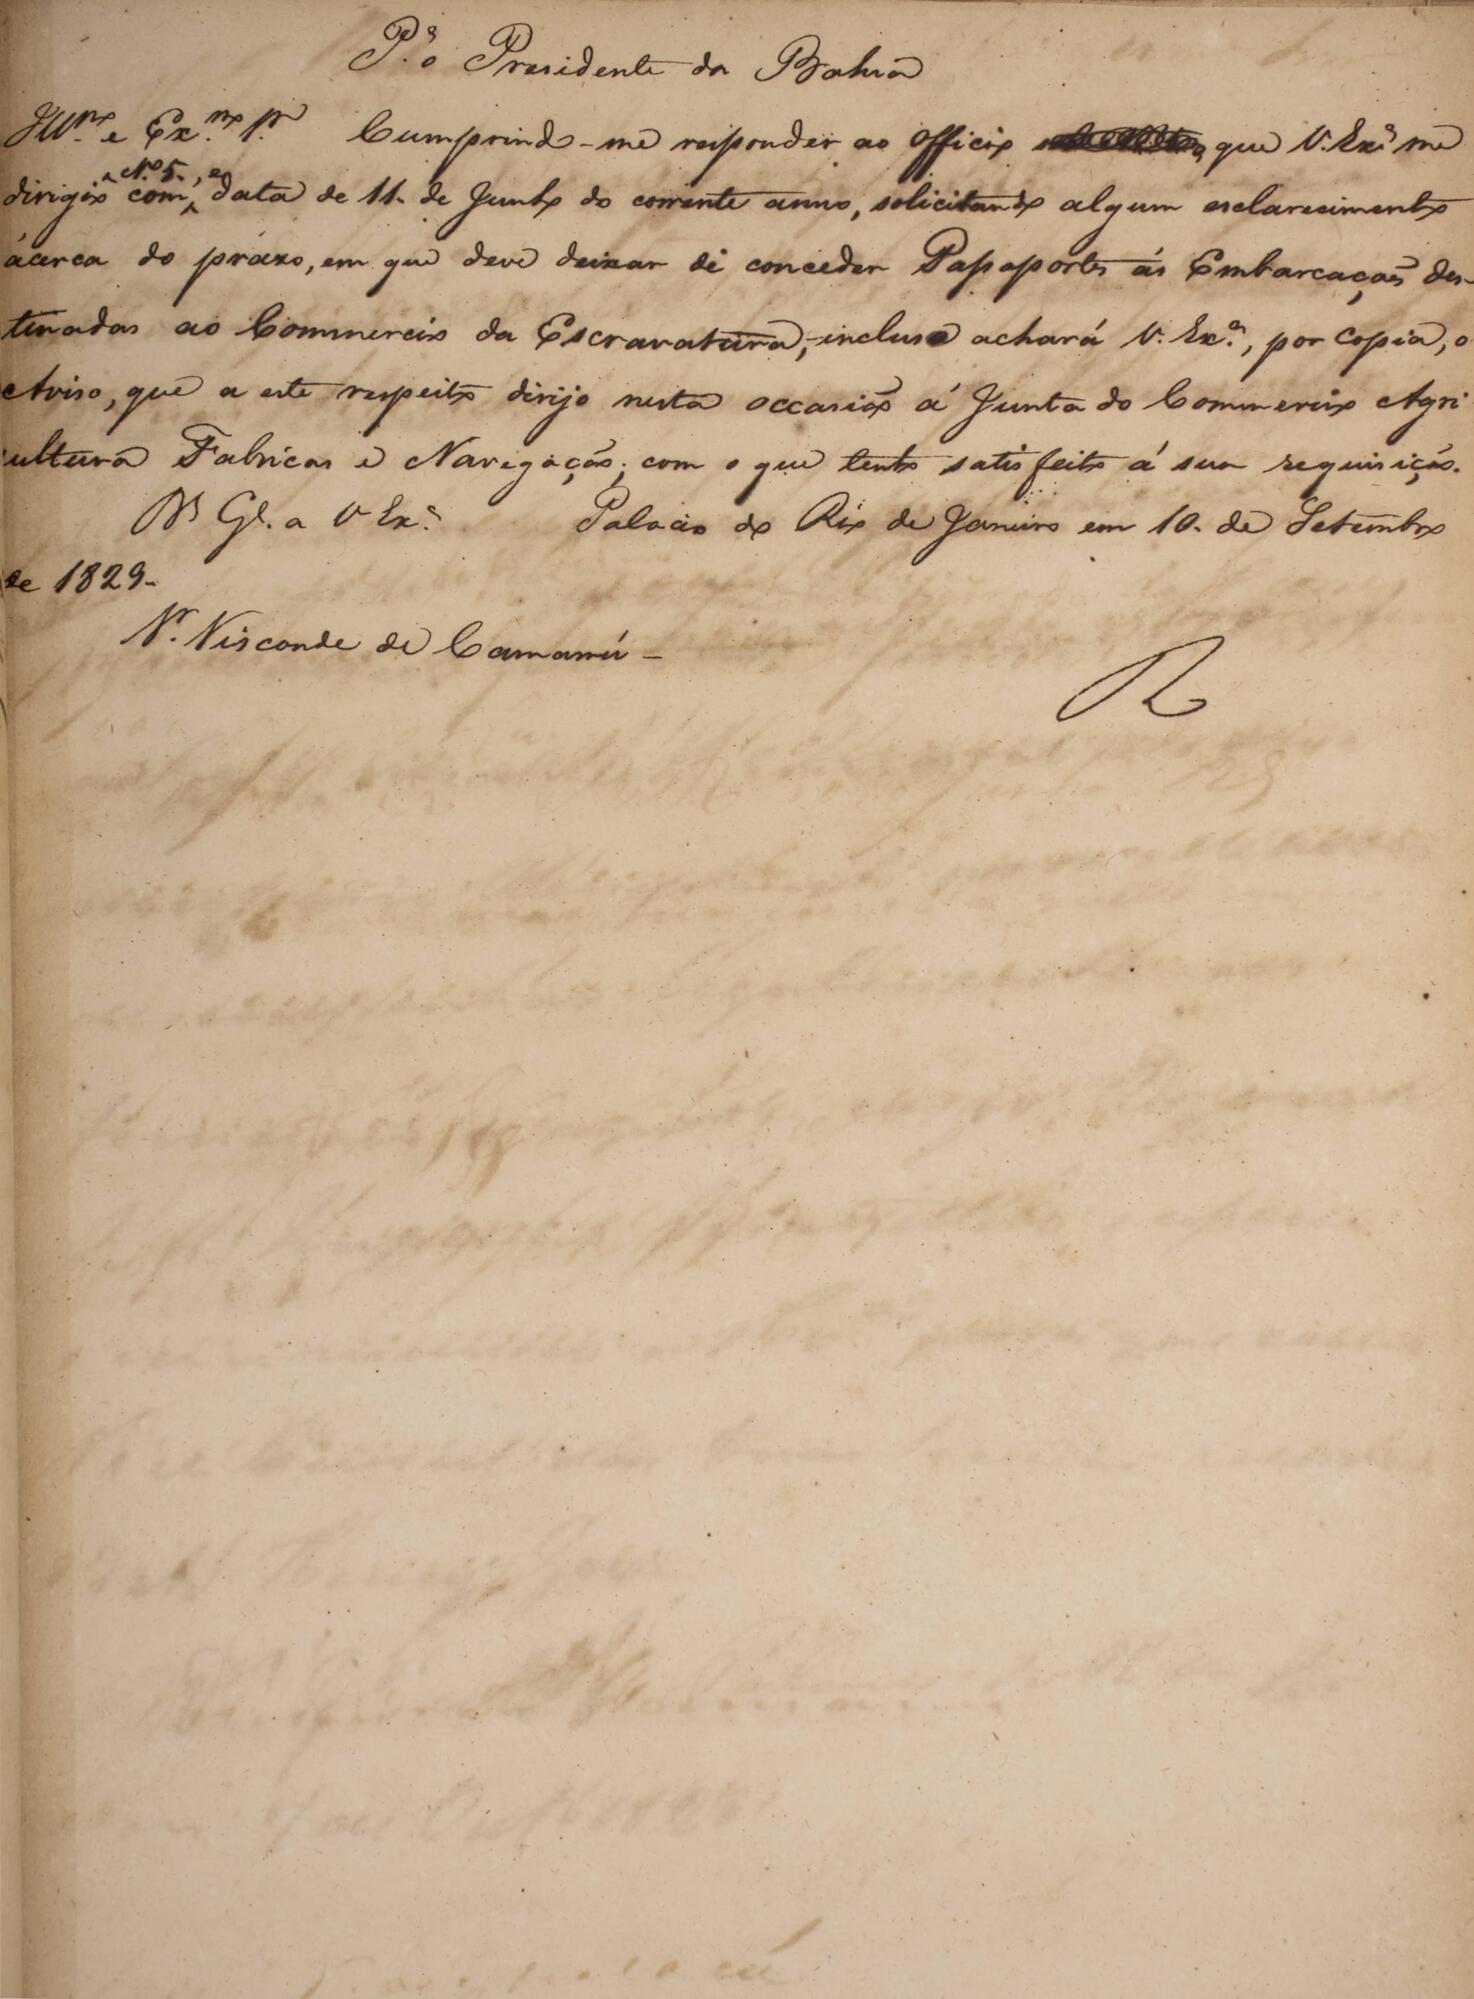 P.ª o Presidente da Bahia
Ill.mo e Ex.mo Sr. Cumprindo-me responder ao Officio que V. Ex.ª me
dirigio com o N.º 5., e data de 11. de Junho do corrente anno, solicitando algum esclarecimento
ácerca do prazo, em que deve deixar de conceder Passaportes ás Embarcações des-
tinadas ao Commercio da Escravatura, incluso achará V. Ex.ª, por copia, o
Aviso, que a este respeito dirijo nesta occasião á Junta do Commercio Agri
cultura Fabricas e Navegação; com o que tenho satisfeito á sua requisição.
D.s G.e a V Ex.ª Palacio do Rio de Janeiro em 10. de Setembro
de 1829.
Sr. Visconde de Camamú -